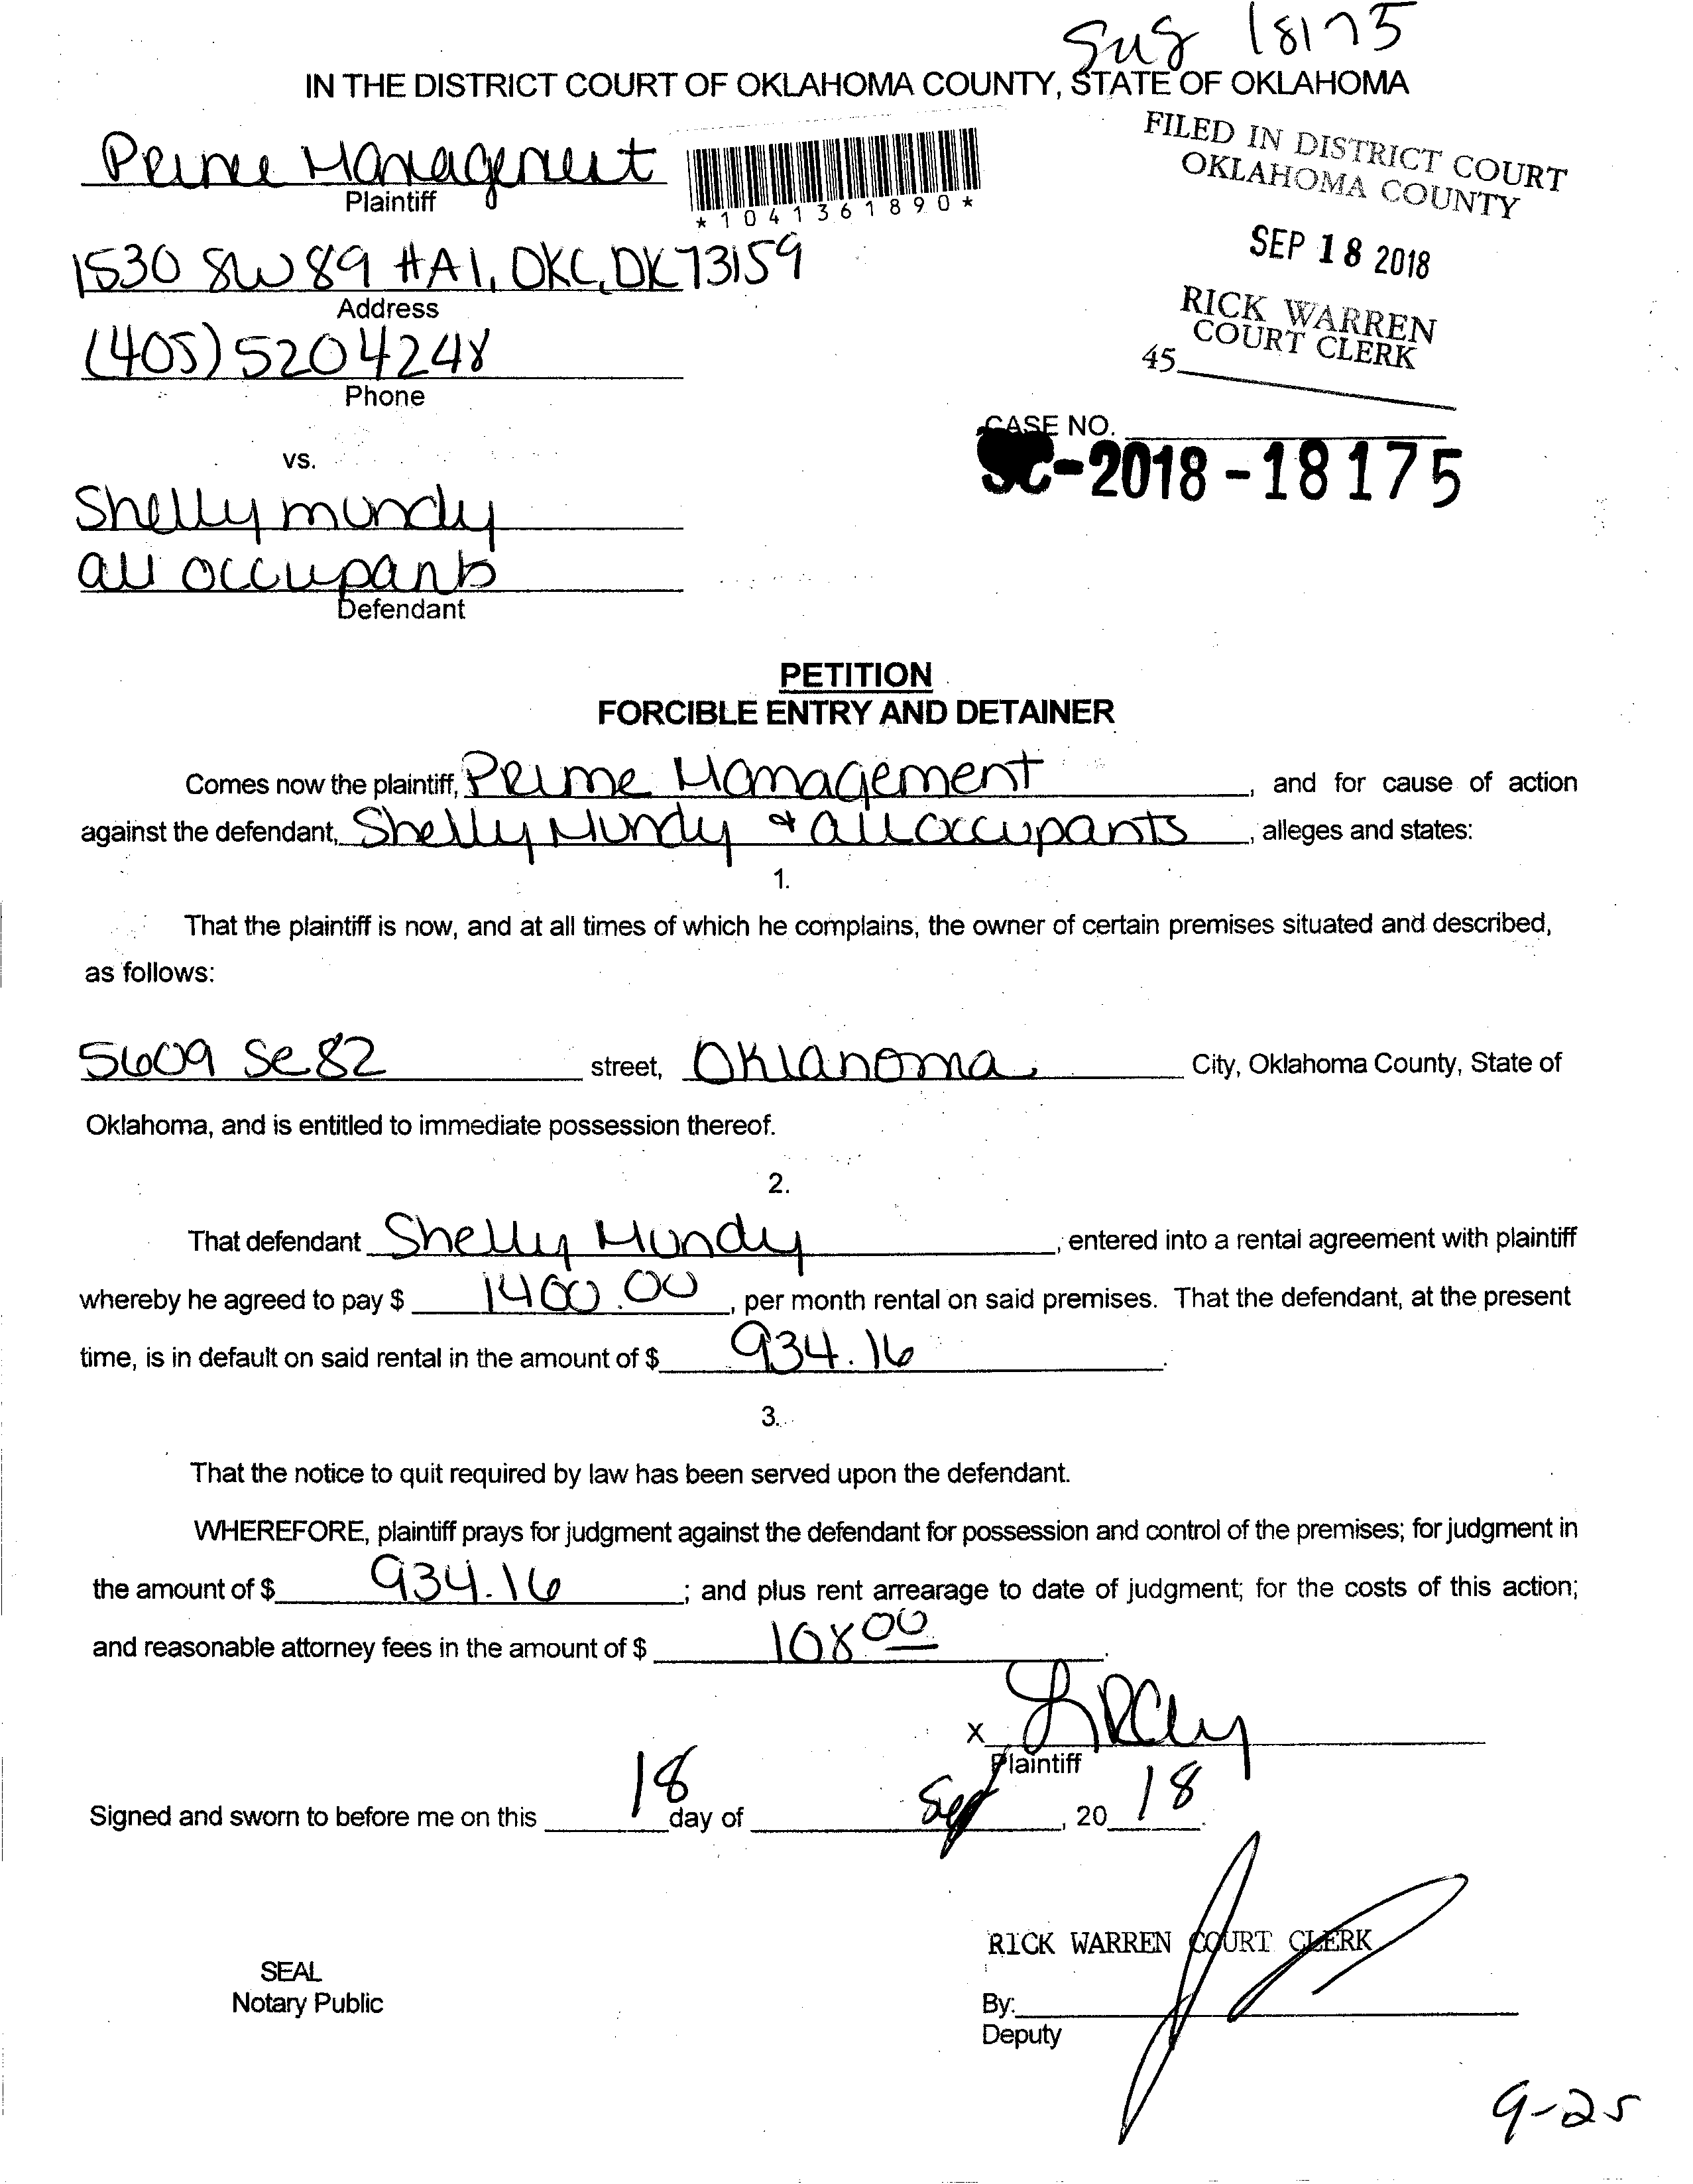 18175
IN THE DISTRICT COURT OF OKLAHOMA COUNTY, STATE OF OKLAHOMA
FILED IN DISTRICT COURT
OKLAHOMA COUNTY
Prime Management
Plaintiff
*1041361890*
SEP 18 2018
1530 SW 89 #A1, OKC, OK 73159
Address
RICK WARREN
COURT CLERK
45
(405) 520 4248
Phone
CASE NO.
SC-2018-18175
vs.
Shelly mundy
all occupants
Defendant
PETITION
FORCIBLE ENTRY AND DETAINER
Comes now the plaintiff, Prime Management, and for cause of action
against the defendant, Shelly Mundy & all occupants, alleges and states:
1.
That the plaintiff is now, and at all times of which he complains, the owner of certain premises situated and described,
as follows:
5609 SE 82 street, Oklahoma City, Oklahoma County, State of
Oklahoma, and is entitled to immediate possession thereof.
2.
That defendant Shelly Mundy, entered into a rental agreement with plaintiff
whereby he agreed to pay $ 1400.00, per month rental on said premises. That the defendant, at the present
time, is in default on said rental in the amount of $ 934.16.
3.
That the notice to quit required by law has been served upon the defendant.
WHEREFORE, plaintiff prays for judgment against the defendant for possession and control of the premises; for judgment in
the amount of $ 934.16; and plus rent arrearage to date of judgment; for the costs of this action;
and reasonable attorney fees in the amount of $ 108 00.
X
Plaintiff
Signed and sworn to before me on this 18 day of Sept, 20 18.
RICK WARREN COURT CLERK
SEAL
Notary Public
By:
Deputy
9-25